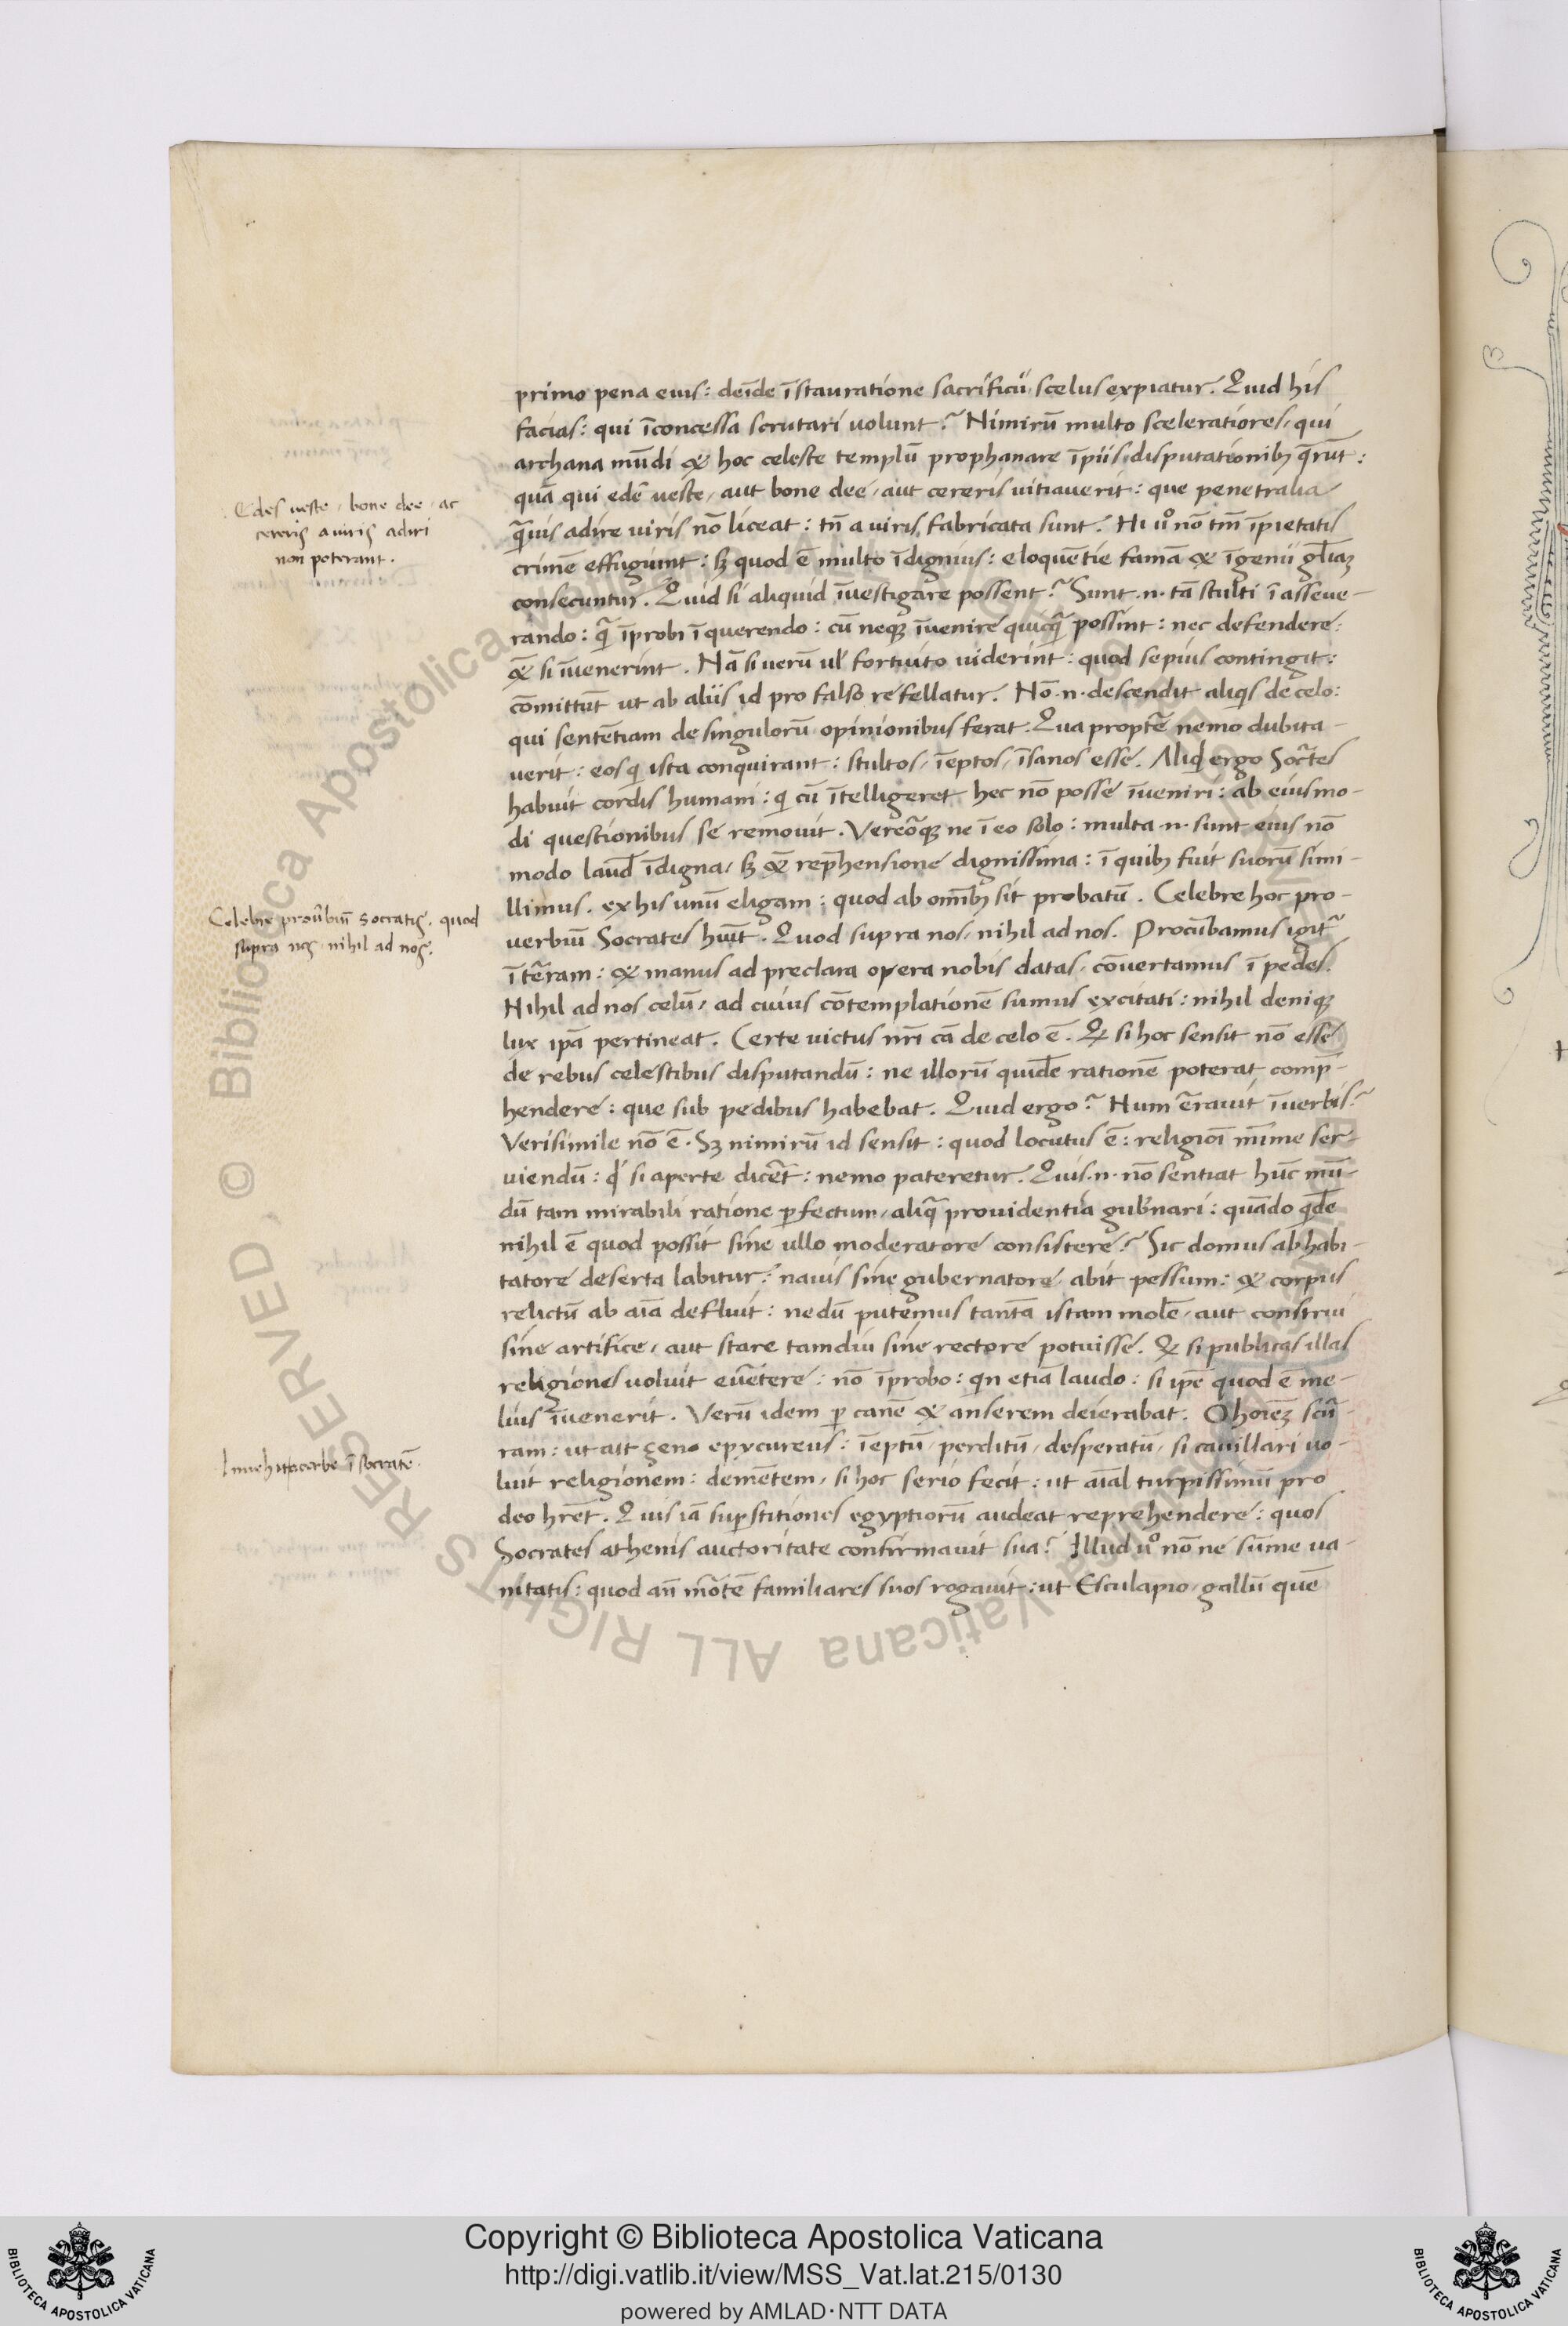 primo pena eius: deīde īstauratione sacrificii scelus expiatur. Quid his
facias: qui īconcessa scrutari uolunt? Nimirū multo sceleratiores, qui
archana mūdi & hoc celeste templū prophanare īpiis disputationibꝫ q̄rūt:
quā qui edē ueste, aut bone dee, aut cereris uitiauerit: que penetralia
q̄uis adire uiris nō liceat: tn̄ a uiris fabricata sunt. Hi uº nō tm̄ īpietatis
crimē effugiunt: sꝫ quod ē multo īdignius: eloquētie famā & īgenii gl̄iaꝫ
consecuntur. Quid si aliquid īuestigare possent? Sunt .n. tā stulti ī asseue-
rando: q̄ īprobi ī querendo: cū neqꝫ īuenire quicq̄ possint: nec defendere:
& si īuenerint. Nā si uerū ul' fortuito uiderint: quod sepius contingit:
cōmittūt ut ab aliis id pro falso refellatur. Nō .n. descendit aliqs de celo:
qui sentētiam de singulorū opinionibus ferat. Qua proptē nemo dubita-
uerit: eos q ista conquirant: stultos, īeptos, īsanos esse. Aliqd ergo Socr̄tes
habuit cordis humani: q cū ītelligeret hec nō posse īueniri: ab eiusmo-
di questionibus se remouit. Vereōqꝫ ne ī eo solo: multa .n. sunt eius nō
modo laud̄ īdigna, sꝫ & rep̄hensione dignissima: ī quibꝫ fuit suorū simi-
llimus. ex his unū eligam: quod ab om̄ibꝫ sit probatū. Celebre hoc pro-
uerbiū Socrates huīt. Quod supra nos, nihil ad nos. Procūbamus igit̄
ī tēram: & manus ad preclara opera nobis datas, cōuertamus ī pedes.
Nihil ad nos celū, ad cuius cōtemplationē sumus excitati: nihil deniqꝫ
lux ip̄a pertineat. Certe uictus nr̄i cā de celo ē. & si hoc sensit nō esse
de rebus celestibus disputandū: ne illorū quidē rationē poterat comp̄-
hendere: que sub pedibus habebat. Quid ergo? Num ērauit ī uerbis?
Verisimile nō ē. Sꝫ nimirū id sensit: quod locutus ē: religiōi mīime ser-
uiendū: qd si aperte dicēt: nemo pateretur. Quis .n. nō sentiat hūc mū-
dū tam mirabili ratione perfectum, aliq̄ prouidentia gub̄nari: quādo qdē
nihil ē quod possit sine ullo moderatore consistere? Sic domus ab habi-
tatore deserta labitur: nauis sine gubernatore abit pessum: & corpus
relictū ab aīa defluit: nedū putemus tantā istam molē, aut construi
sine artifice, aut stare tamdiu sine rectore potuisse. & si publicas illas
religiones uoluit euētere: nō īprobo: qn etiā laudo: si ipē quod ē me-
lius īuenerit. Verū idem p canē & anserem deierabat. O hoīeꝫ scū-
ram: ut ait zeno epycureus: īeptū, perditū, desperatū, si cauillari uo-
luit religionem: demētem, si hoc serio fecit: ut aīal turpissimū pro
deo hr̄et. Quis iā sup̄stitiones egyptiorū audeat reprehendere: quos
Socrates athenis auctoritate confirmauit sua? Illud uº nō ne sūme ua-
nitatis: quod an̄ mōtē familiares suos rogauit: ut Esculapio, gallū quē
Edes ueste, bone dee, ac
cereris a uiris adiri
non poterant.
Celebre prou̇biū Socratis. quod
supra nos nihil ad nos.
Inuehit acerbe ī socratē.
Copyright © Biblioteca Apostolica Vaticana
http://digi.vatlib.it/view/MSS_Vat.lat.215/0130
powered by AMLAD·NTT DATA
BIBLIOTECA APOSTOLICA VATICANA
BIBLIOTECA APOSTOLICA VATICANA